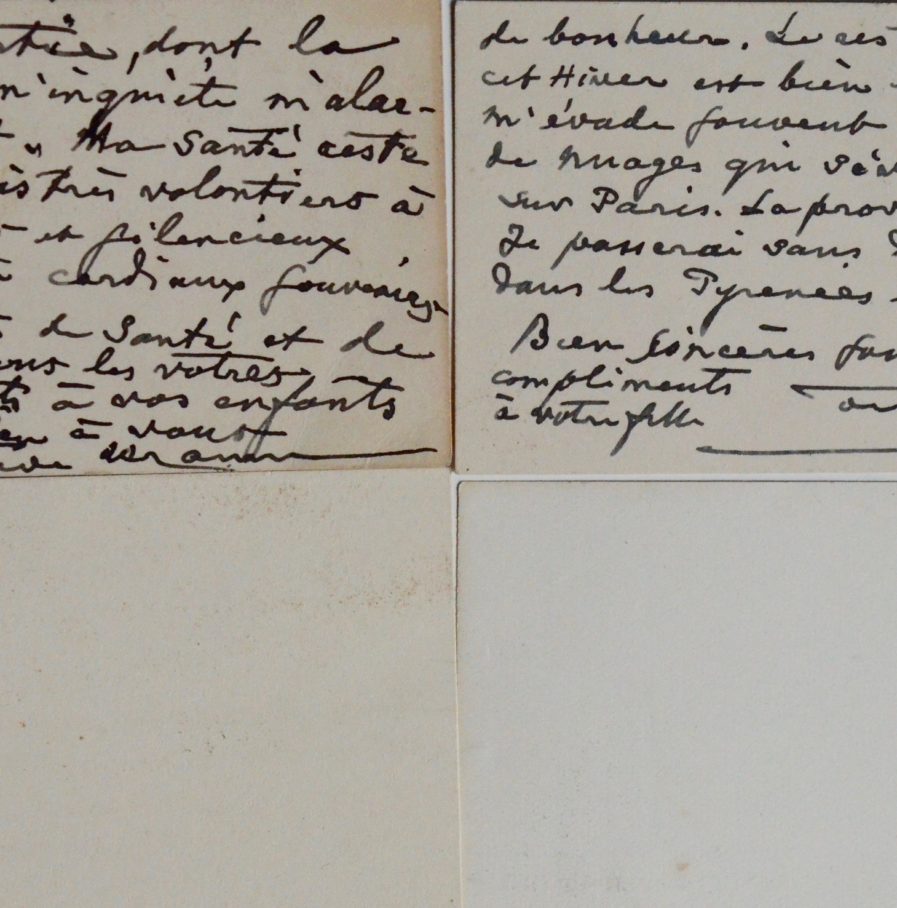 dont la
m'inquiète m'alar-
Ma Santé reste
très volontiers à
et silencieux
cordiaux souvenirs
de Santé et de
les votres
à vos enfants
à vous
de bonheur. Le
cet Hiver est bien
m'évade souvent
de nuages qui
sur Paris. La
Je passerai sans
dans les Pyrenées
Bien sincères
compliments
à votre fille